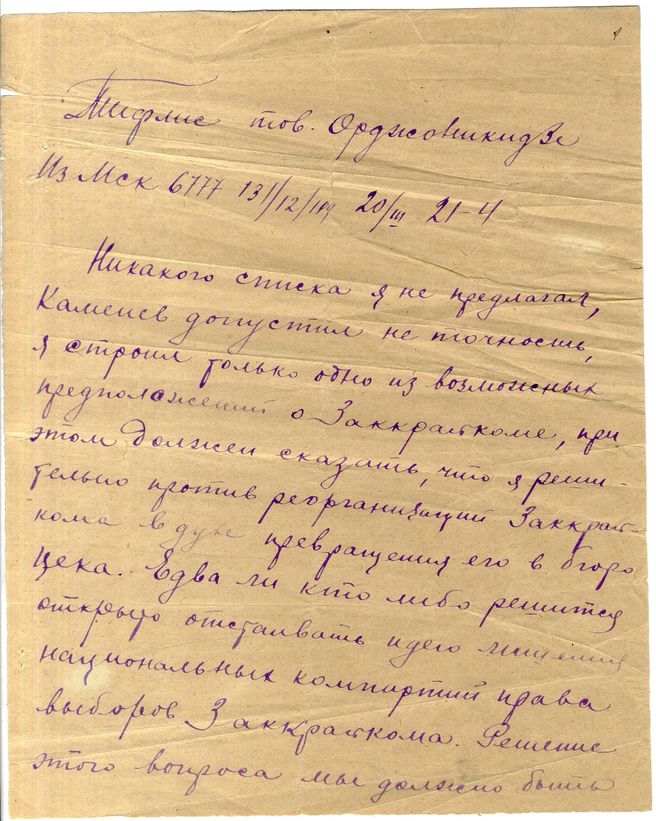 Тифлис тов. Орджоникидзе
Из Мск 6777 131//12/ 20/III 21-4
Никакого списка я не предлагал,
Каменев допустил не точность,
я строил только одно из возможных
предположений о Заккрайкоме, при
этом должен сказать, что я реши-
тельно против реорганизации Заккрай-
кома в духе превращения его в бюро
цека. Едва ли кто либо решится
открыто отстаивать идею лишения
национальных компартий права
выборов Заккрайкома. Решение
этого вопроса мы должно быть